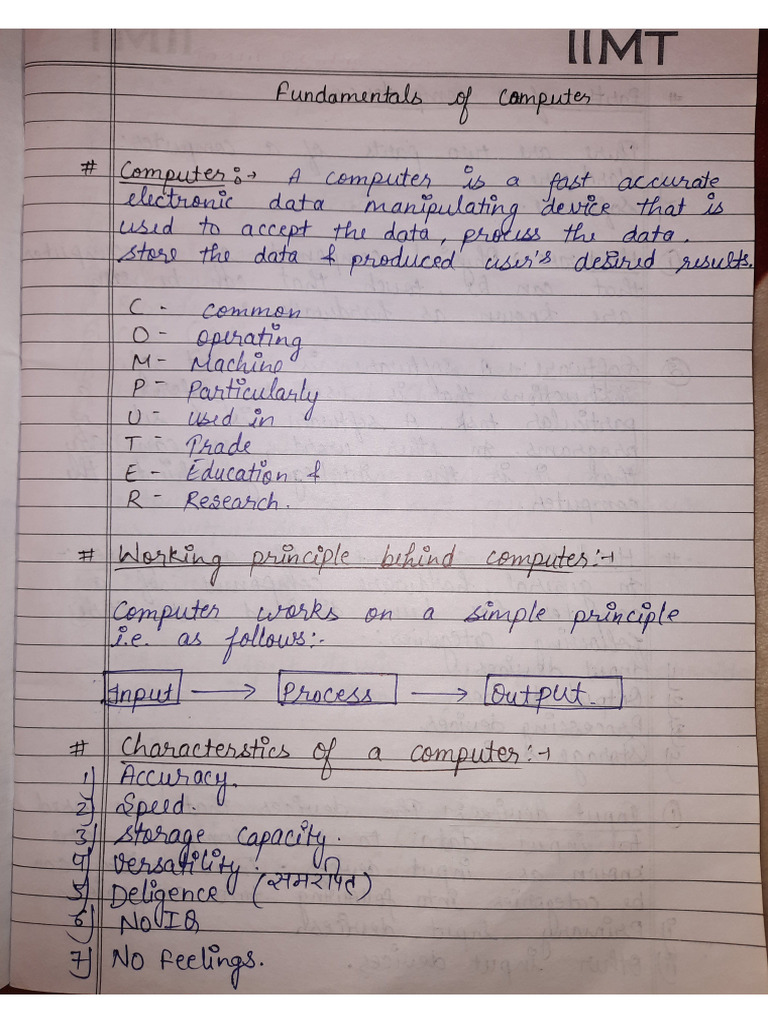 IIMT
Fundamentals of computer
# Computer:→ A computer is a fast accurate
electronic data manipulating device that is
used to accept the data, process the data.
store the data & produced user's desired results.
C - Common
O - Operating
M - Machine
P - Particularly
U - used in
T - Trade
E - Education &
R - Research.
# Working principle behind computer:→
Computer works on a simple principle
i.e. as follows:-
Input → Process → Output
# Characterstics of a computer:→
1) Accuracy.
2) Speed.
3) Storage capacity.
4) Versatility.
5) Deligence (समरपित)
6) No IQ
7) No Feelings.